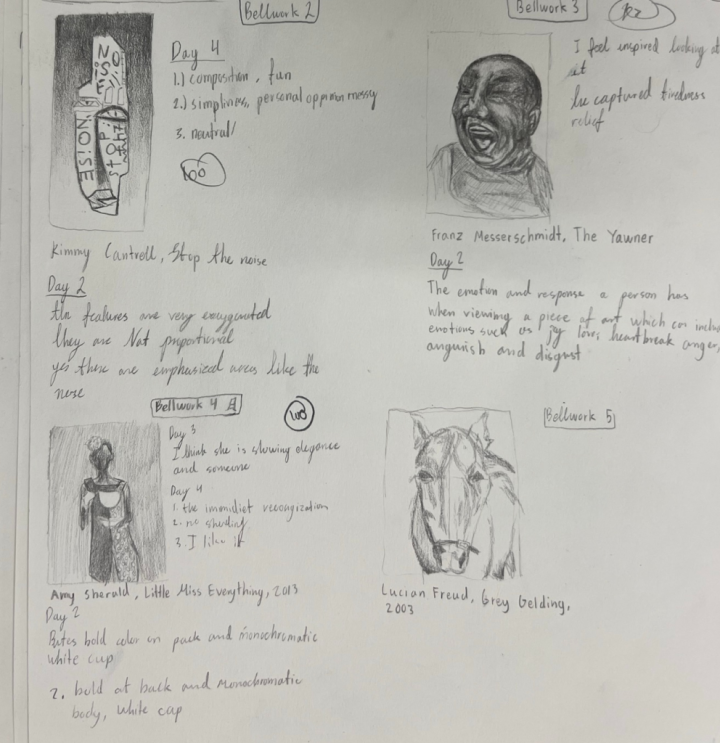 Bellwork 2
Day 4
1.) composition, fun
2.) simplines, personal oppinion messy
3. neutral
100
Kimmy Cantrell, Stop the noise
Day 2
features are very exxygerated
they are Not proportional
yes these are emphasized areas like the
nose
Bellwork 3
I feel inspired looking at
it
he captured tiredness
relief
Franz Messerschmidt, The Yawner
Day 2
The emotion and response a person has
when viewing a piece of art which can include
emotions such as joy love, heartbreak anger,
anguish and disgust
Bellwork 4
100
Day 3
I think she is showing elegance
and someone
Day 4
1. the recongization
2. no shading
3. I like it
Amy Sherald, Little Miss Everything, 2013
Day 2
bold color on and monochromatic
white cup
2. bold at back and monochromatic
body, white cap
Bellwork 5
Lucian Freud, Grey Gelding,
2003